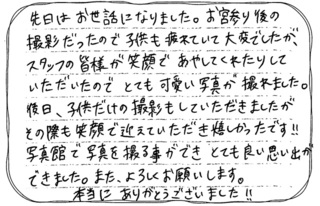 先日はお世話になりました。お宮参り後の
撮影だったので子供も疲れていて大変でしたが、
スタッフの皆様が笑顔であやしてくれたりして
いただいたのでとても可愛い写真が撮れました。
後日、子供だけの撮影もしていただきましたが
その際も笑顔で迎えていただき嬉しかったです!!
写真館で写真を撮る事ができとても良い思い出が
できました。また、よろしくお願いします。
本当にありがとうございました!!